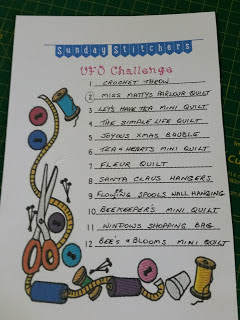 Sunday Stitchers
UFO Challenge
1 CROCHET THROW
2 MISS MATTYS PARLOUR QUILT
3 LET'S HAVE TEA MINI QUILT
4 THE SIMPLE LIFE QUILT
5 JOYOUS XMAS BAUBLE
6 TEA & HEARTS MINI QUILT
7 FLEUR QUILT
8 SANTA CLAUS HANGERS
9 FLOWING SPOOLS WALL HANGING
10 BEEKEEPER'S MINI QUILT
11 WINDOWS SHOPPING BAG
12 BEE'S & BLOOMS MINI QUILT